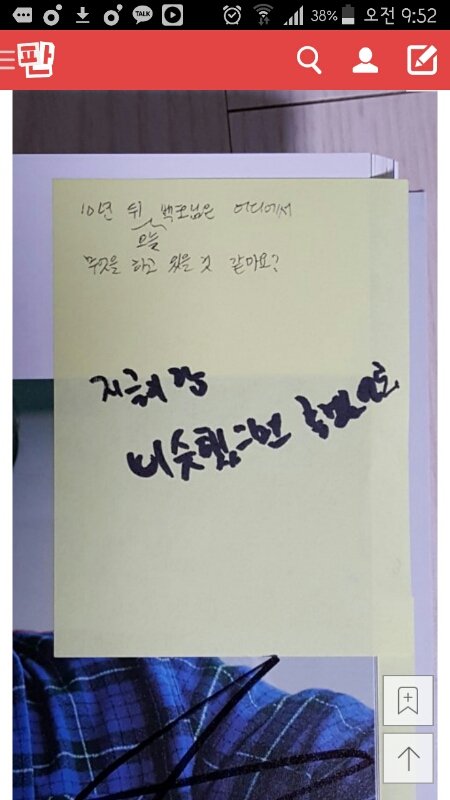 TALK 38% 오전 9:52
판
10년 뒤 백호님은 어디에서
오늘
무엇을 하고 있을 것 같아요?
지금이랑
비슷했으면